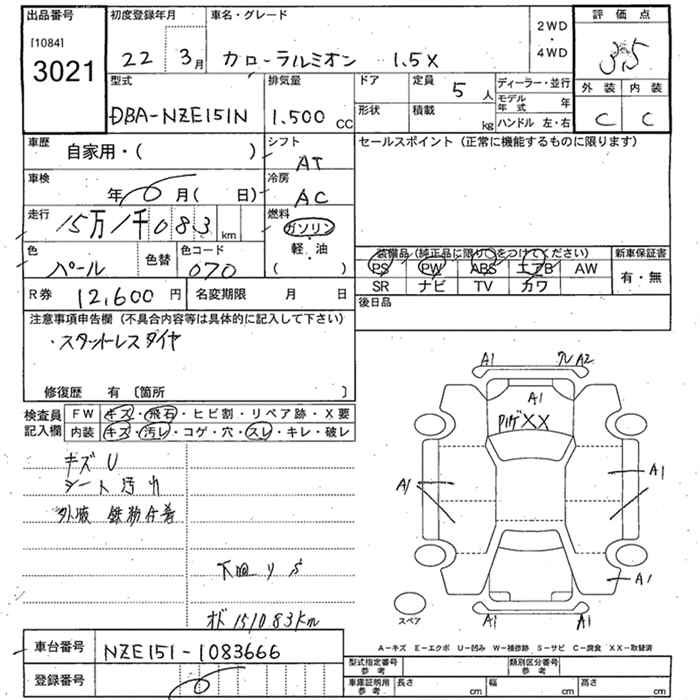 出品番号
[1084]
3021
初度登録年月
22 3月
車名・グレード
カローラルミオン 1.5X
2WD
・
4WD
評価点
3.5
外装 内装
C C
型式
DBA-NZE151N
排気量
1.500 CC
ドア
定員
5人
形状
積載
kg
ディーラー・並行
モデル年式 年
ハンドル 左・右
車歴
自家用・( )
シフト
AT
セールスポイント (正常に機能するものに限ります)
車検
年 月( 日)
冷房
AC
走行
15万1千083 km
燃料
ガソリン
・
軽・油
( )
色
パール
色替
色コード
070
装備品(純正品に限り○をつけてください)
PS PW ABS エアB AW
SR ナビ TV カワ
新車保証書
有・無
R券 12,600円
名変期限 月 日
後日品
注意事項申告欄 (不具合内容等は具体的に記入して下さい)
・スタットレスタイヤ
修復歴 有 〔箇所 〕
検査員記入欄
FW キズ・飛石・ヒビ割・リペア跡・X要
内装 キズ・汚レ・コゲ・穴・スレ・キレ・破レ
キズU
シート汚れ
外板 鉄粉付着
下回りS
オド151083km
A1
A2
A1
XX
A1
A1
A1
A1
A1
スペア
A-キズ E-エクボ U-凹み W-補修跡 S-サビ C-腐食 XX-取替済
車台番号
NZE151-1083666
登録番号
型式指定番号
参考
類別区分番号
参考
車庫証明用
参考
長さ cm
幅 cm
高さ cm